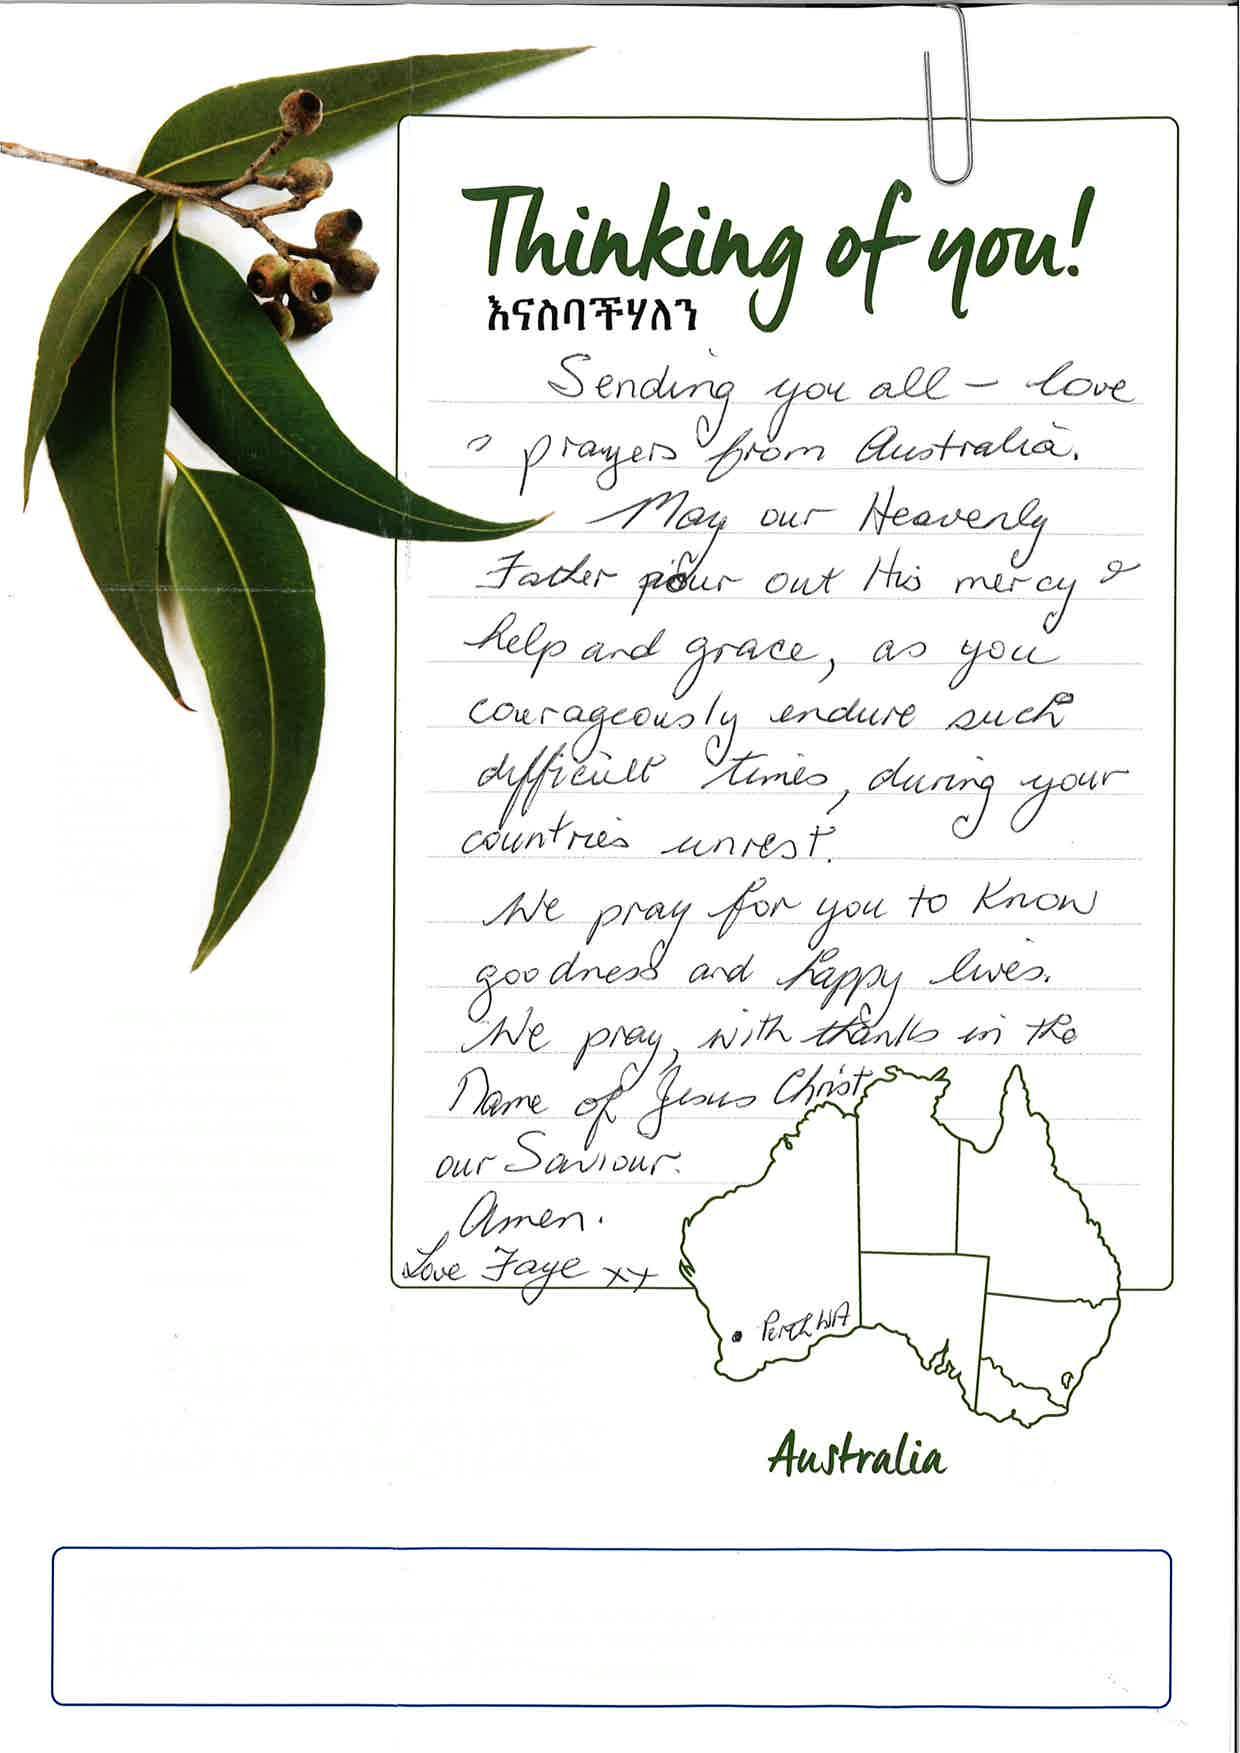 Thinking of you!
እናስባችሃለን
Sending you all – love
& prayers from Australia.
May our Heavenly
Father pour out His mercy &
help and grace, as you
courageously endure such
difficult times, during your
countries unrest.
We pray for you to know
goodness and happy lives.
We pray, with thanks in the
Name of Jesus Christ
our Saviour.
Amen.
Love Faye xx
Perth WA
Australia